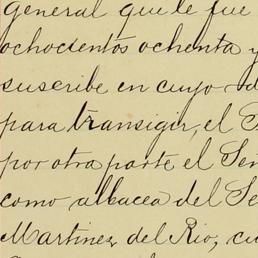 general que le fue
ochocientos ochenta y
suscribe en cuyo
para transigir, el
por otra parte el Señ
como albacea del Se
Martinez del Rio, cu